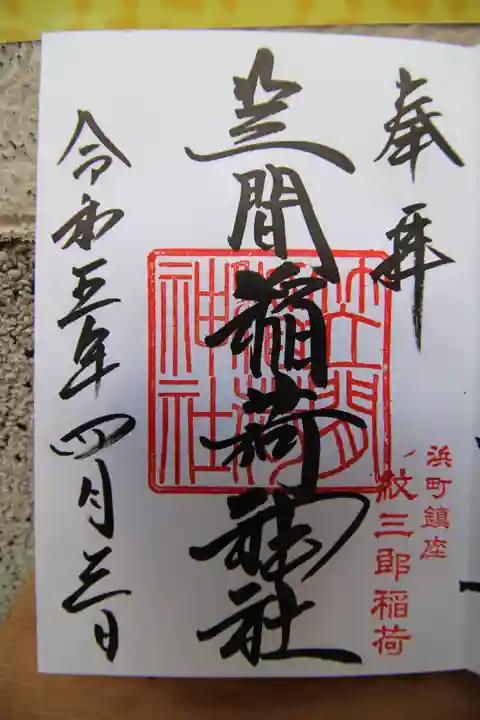 奉拝
浜町鎮座
紋三郎稲荷
笠間稲荷神社
笠間
稲荷
神社
令和五年四月三日